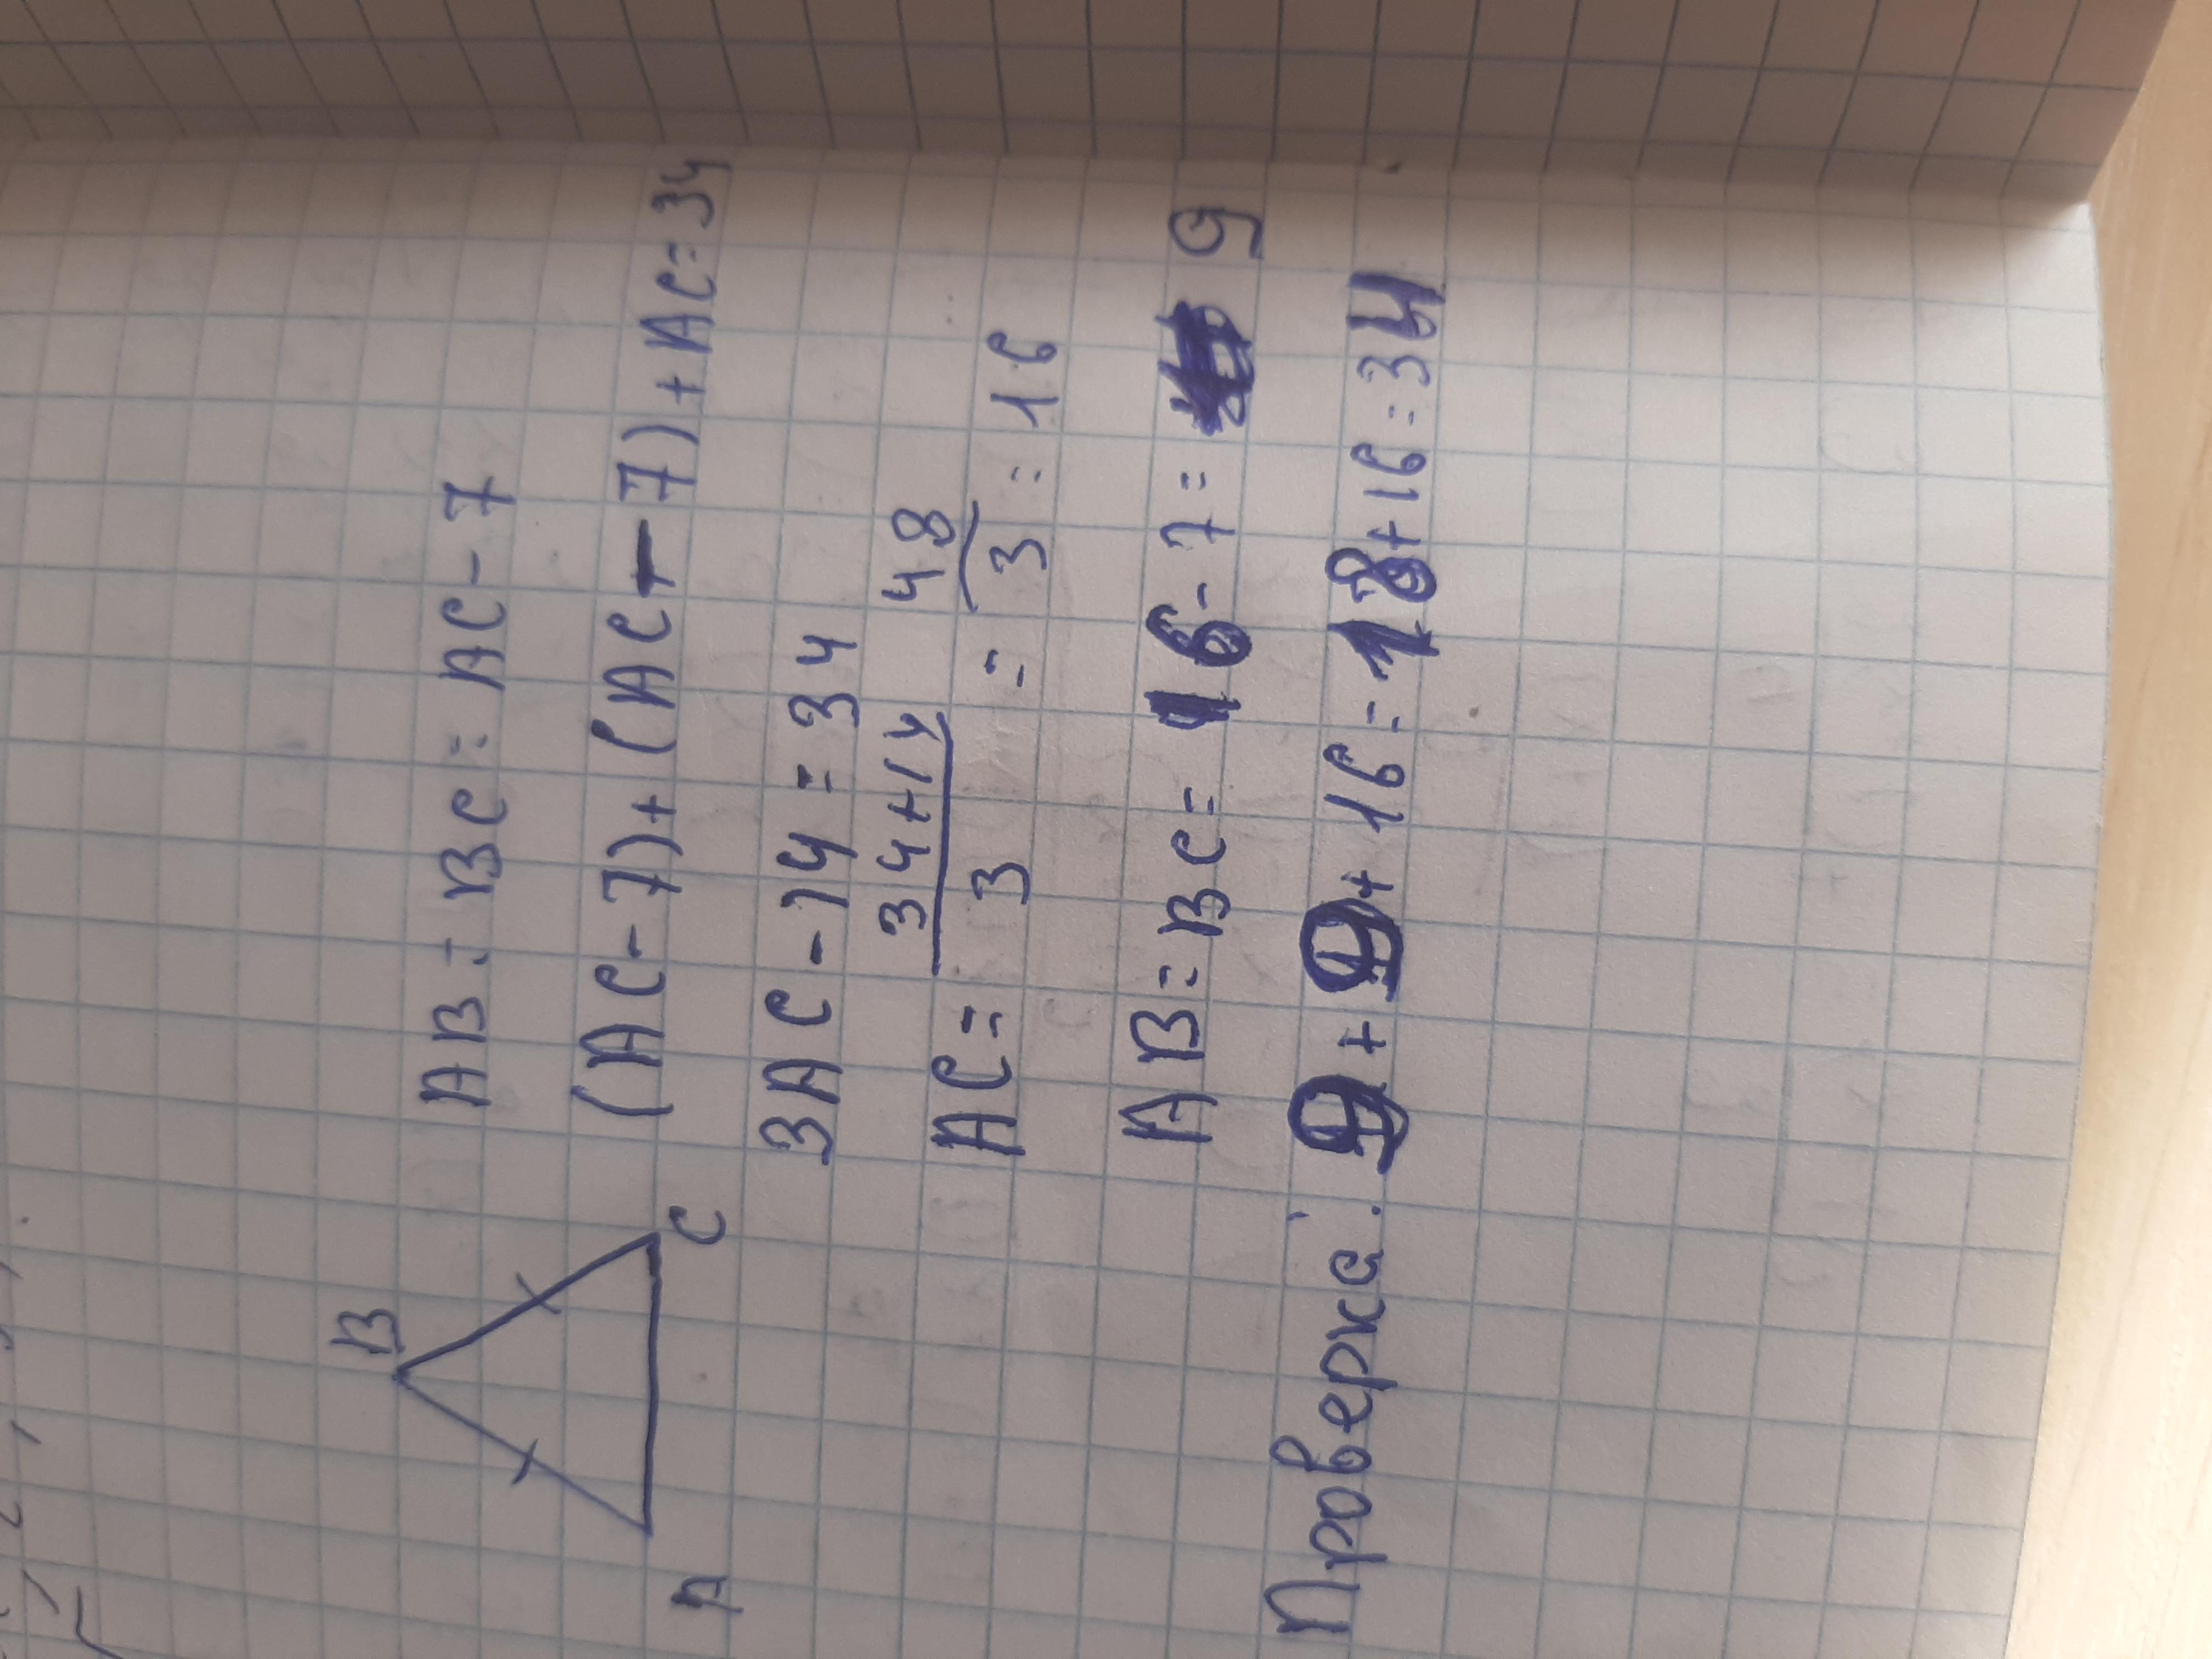 AB = BC = AC - 7
(AC - 7) + (AC - 7) + AC = 34
3AC - 14 = 34
AC = \frac{34+14}{3} = \frac{48}{3} = 16
AB = BC = 16 - 7 = 9
Проверка: 9 + 9 + 16 = 18 + 16 = 34
B
A
C